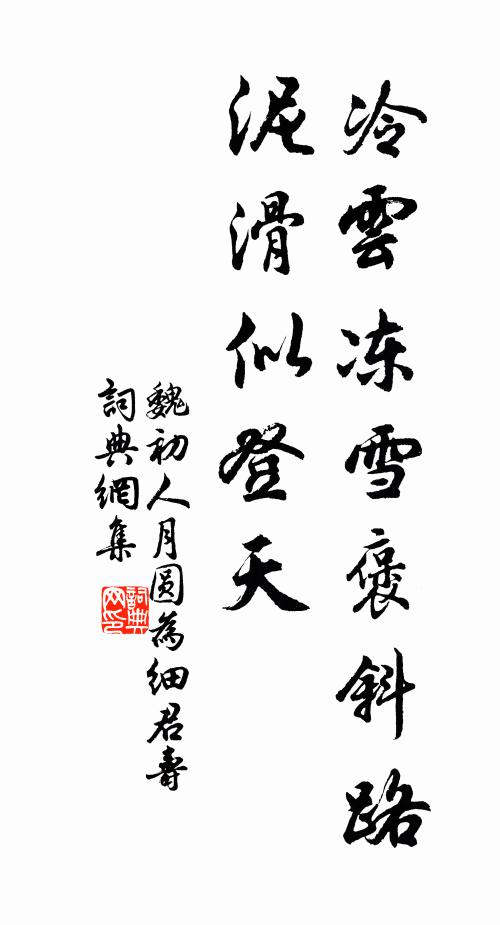 冷雲冻雪褒斜路
泥滑似登天
魏初人月圆為细君壽
詞典網集
詞典网印